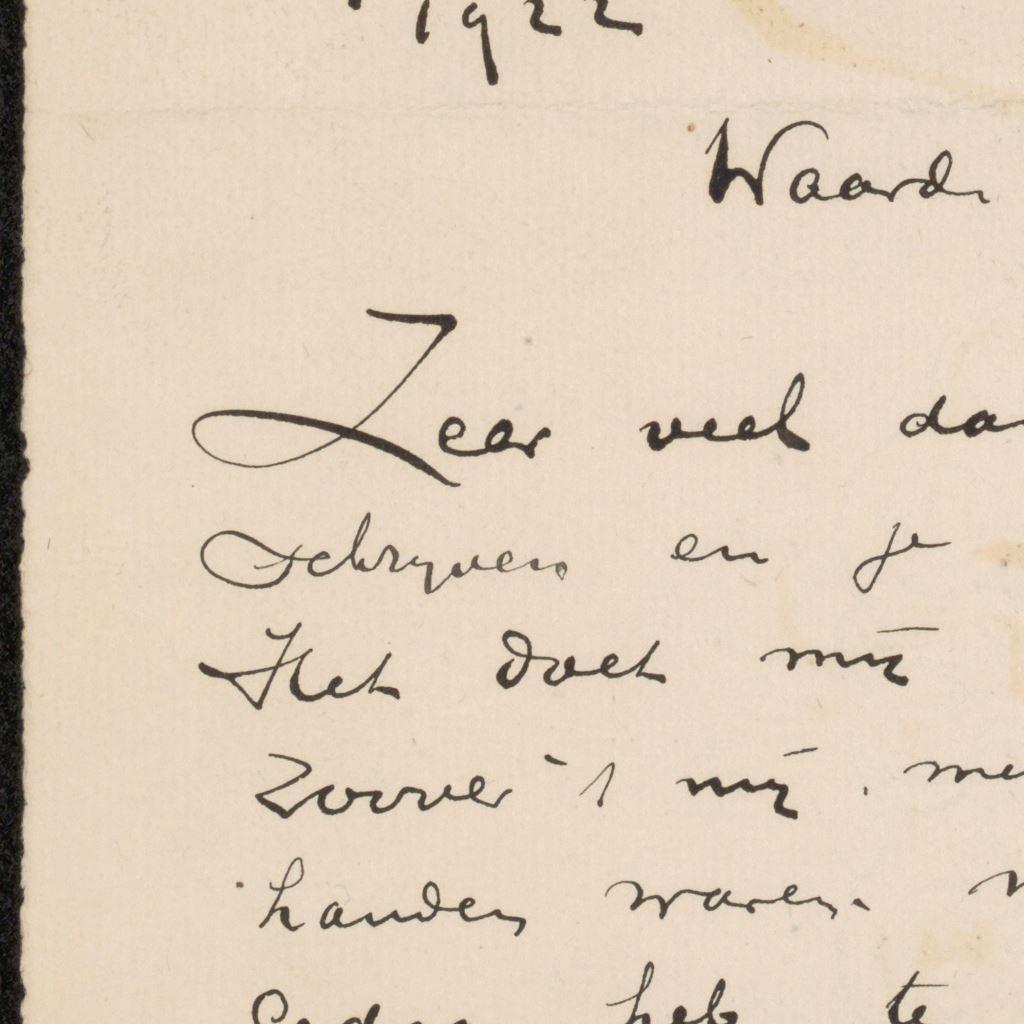 1922
Waarde
Zeer veel da
schryven en je
Het doet mij
zoover 't mij. me
handen waren.
heb te